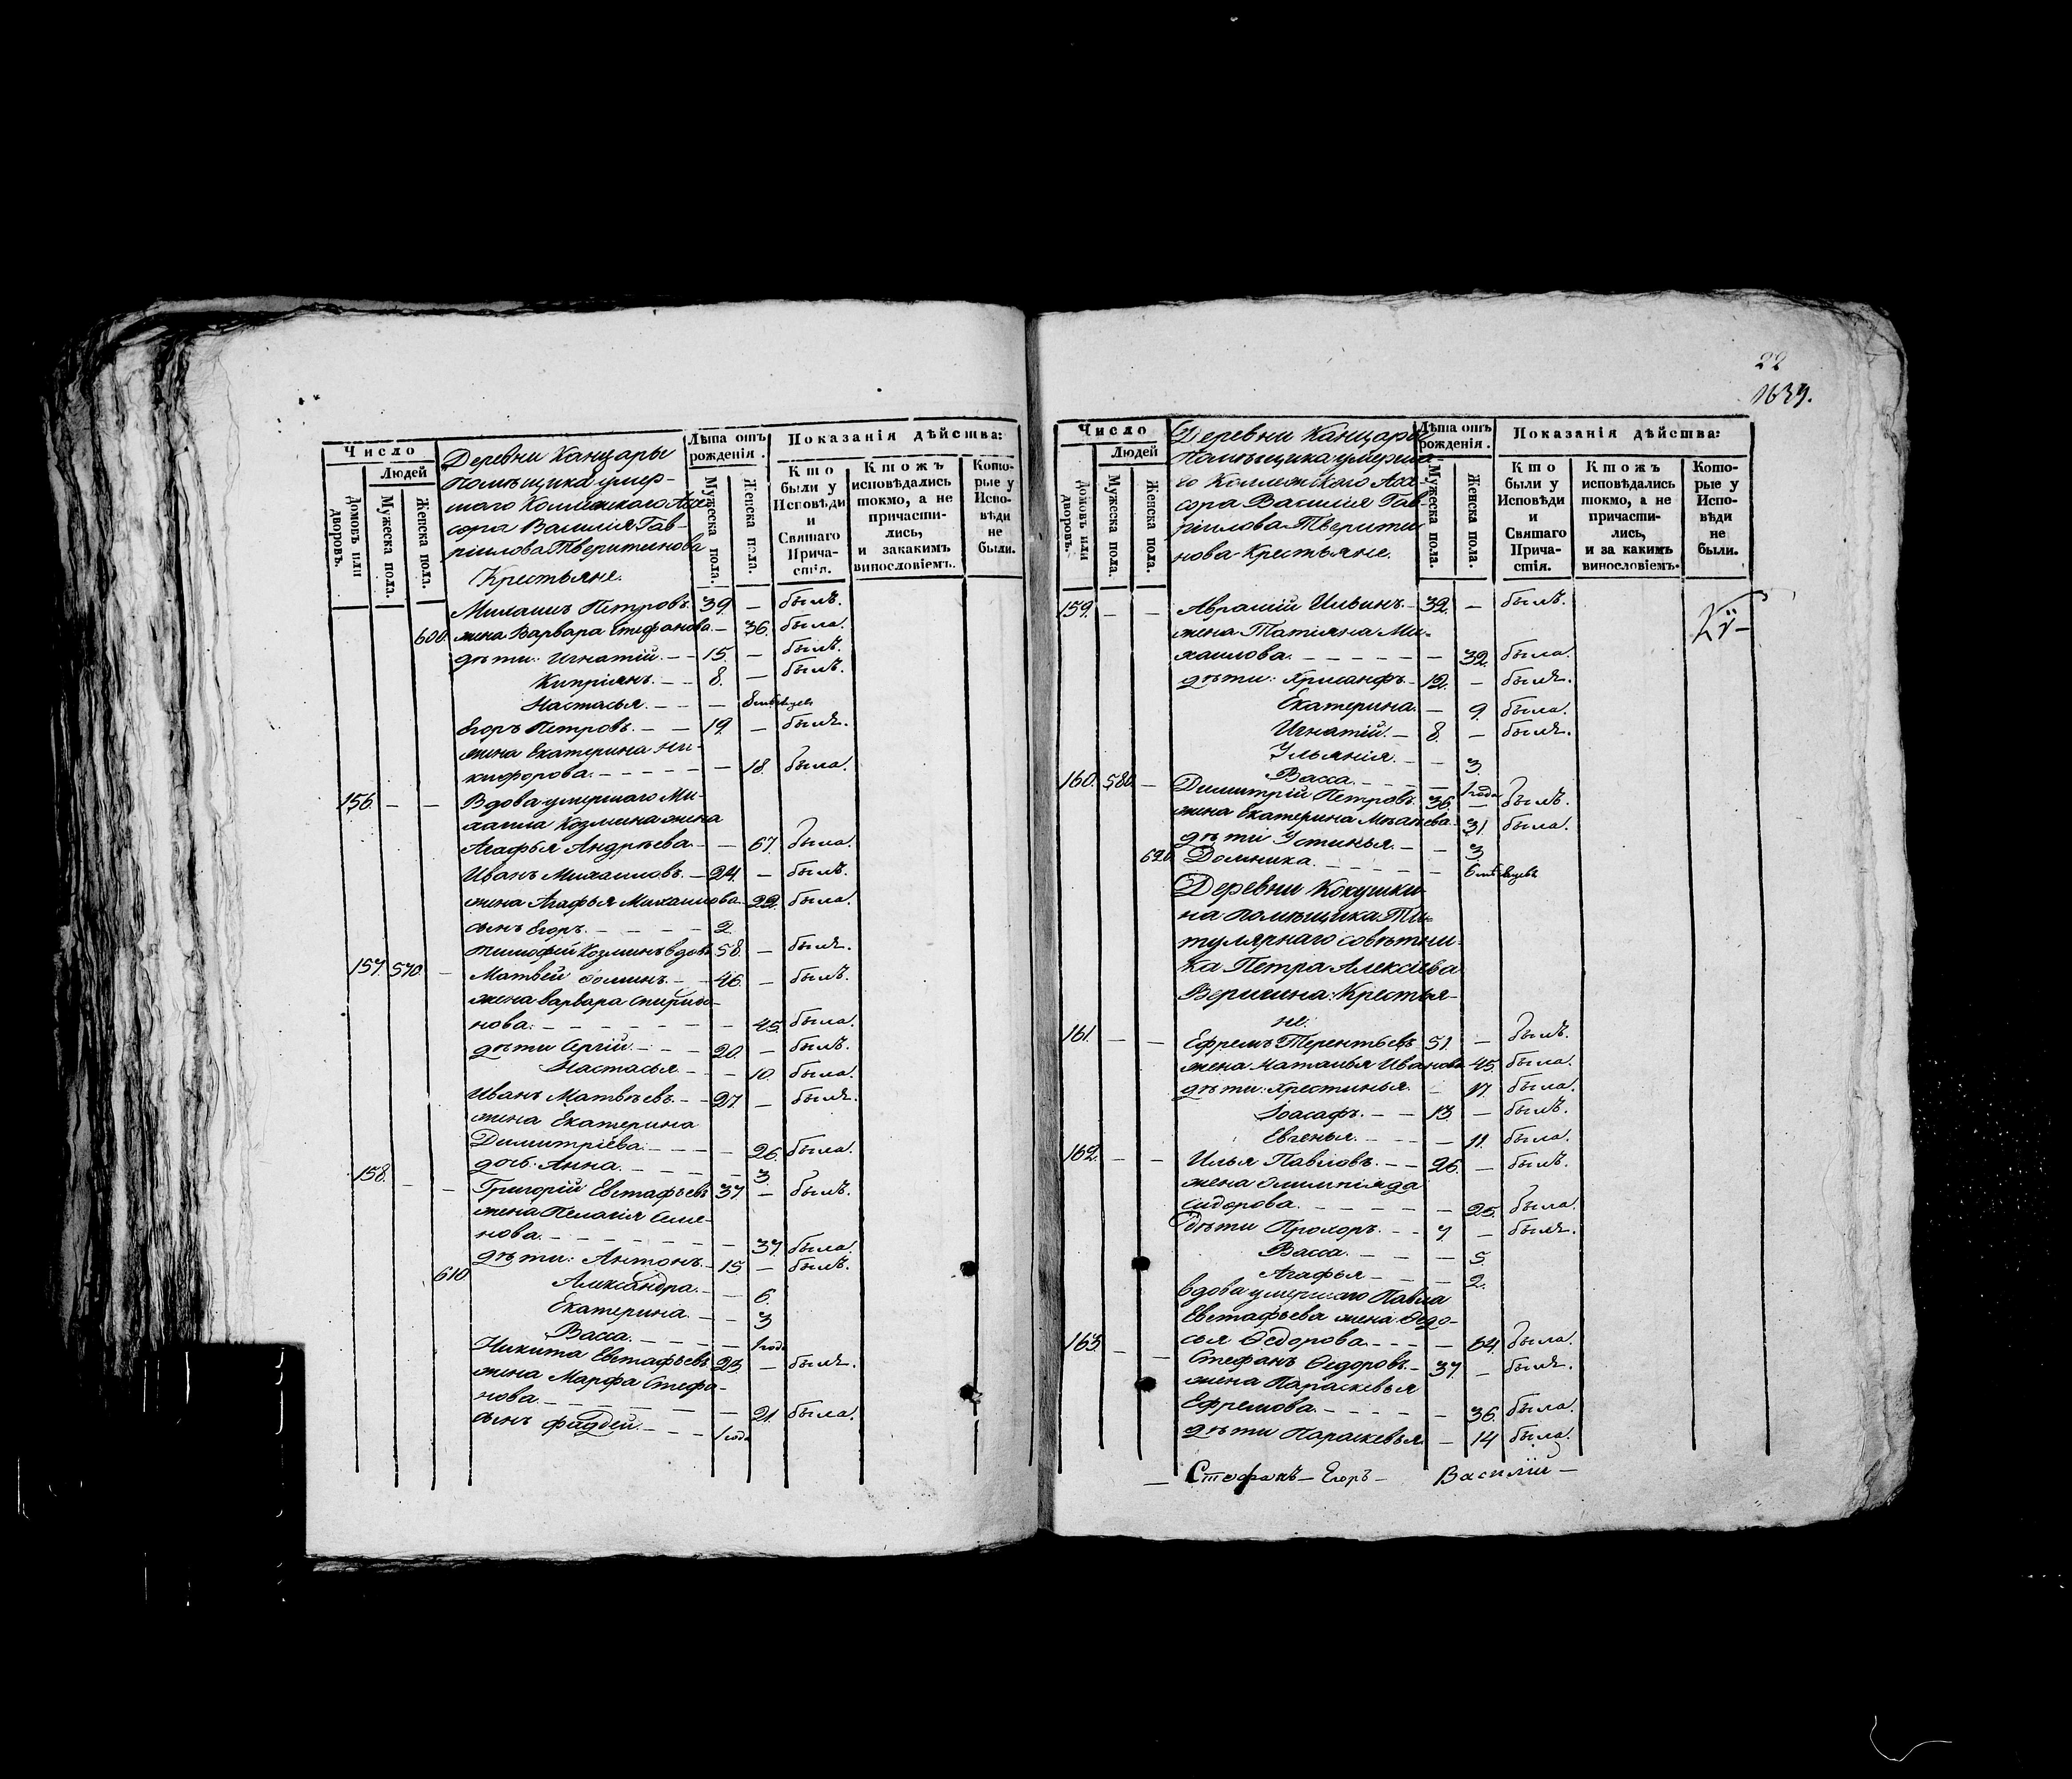 Число
Людей
Домовъ или дворовъ.
Мужеска пола.
Женска пола.
Деревни Канцары
Помѣщика умер-
шаго Коллежскаго Ассе-
сора Василія Гав-
рілова Тверитинова
Крестьяне.
Лѣта отъ рожденія.
Мужеска пола.
Женска пола.
Показанія дѣйства:
Кто были у Исповѣди и Святаго Прича-стія.
Ктожъ исповѣдались токмо, а не причасти-лись, и закакимъ винословіемъ.
Кото-рые у Испо-вѣди не были.
Петровъ. 39 — былъ.
600. жена Варвара Стефанова — 36. была.
дѣти: Игнатій. — — 15. — былъ.
Кипріянъ. — — 8. — былъ.
Настасья. — — — 8 мѣсяцев
Егоръ Петровъ. — — 19. — былъ.
жена Екатерина Ни-
кифорова. — — — — — — 18. была.
156. — — Вдова умершаго Ми-
хаила Козмина жена
Агафья Андрѣева. — — 67. была.
Иванъ Михаиловъ. — 24. — былъ.
жена Агафья Михаилова — 22. была.
сынъ Егоръ. — — — — 2.
Тимофей Козминъ вдовъ 58. — былъ.
157. 570. — Матвей Фоминъ. — — 46. — былъ.
жена Варвара Спиридо-
нова. — — — — — — — 45. была.
дѣти Сергій. — — — 20. — былъ.
Настасья — — — 10. была.
Иванъ Матвѣевъ. — — 27. — былъ.
жена Екатерина
Димитріева. — — — — 26. была.
дочь. Анна. — — — — — 3.
158. — — Григорій Евстафьевъ 37. — былъ.
жена Пелагія Семе-
нова. — — — — — — — 37. была.
дѣти: Антонъ. — 15. — былъ.
610 Александра. — — 6.
Екатерина. — — 3
Васса. — — — — 1 год.
Никита Евстафьевъ 23. — былъ.
жена Марфа Стефа-
нова. — — — — — — — 21. была.
сынъ Фаддей. — — — 1 года
22
1639.
Число
Людей
Домовъ или дворовъ.
Мужеска пола.
Женска пола.
Деревни Канцары
Помѣщика умерша-
го Коллежскаго Ассе-
сора Василія Гав-
рілова Тверити-
нова Крестьяне.
Лѣта отъ рожденія.
Мужеска пола.
Женска пола.
Показанія дѣйства:
Кто были у Исповѣди и Святаго Прича-стія.
Ктожъ исповѣдались токмо, а не причасти-лись, и за какимъ винословіемъ.
Кото-рые у Испо-вѣди не были.
159. — — Аврамій Ильинъ. — 32. — былъ.
жена Татіяна Ми-
хаилова. — — — — — — 32. была.
дѣти: Хрисанфъ. — 12. — былъ.
Екатерина. — 9. была.
Игнатій. — 8. — былъ.
Ульянія. — — 3.
Васса. — — — — 1 года
160. 580. — Димитрій Петровъ. 36. — былъ.
жена Екатерина Матвѣева. 31. была.
дѣти Устинья. — — 3.
620. Домника. — — — — — 6 мѣсяцевъ
Деревни Кокушки-
на помѣщика Ти-
тулярнаго совѣтни-
ка Петра Алексіева
Веригина: Крестья-
не:
161. — — Ефремъ Терентьевъ 51. — былъ.
жена Наталья Иванова 45. была.
дѣти: Христинья. — 17. была.
Іоасафъ. — — 13. — былъ.
Евгенья. — — — — 11. была.
162. — — Илья Павловъ. — — 26. — былъ.
жена Олимпіада
Сидорова. — — — — — — 25. была.
Дѣти Прохоръ. — — 7 — былъ.
Васса. — — — 5.
Агафья — — — 2.
вдова умершаго Павла
Евстафьева жена Ѳедо-
сья Ѳедорова. — — — — 64. была.
163. — — Стефанъ Ѳедоровъ. — 37. — былъ.
жена Параскевья
Ефремова. — — — — — 36. была.
дѣти Параскевья. — 14 была.
— Стефанъ — Егоръ — Василій —